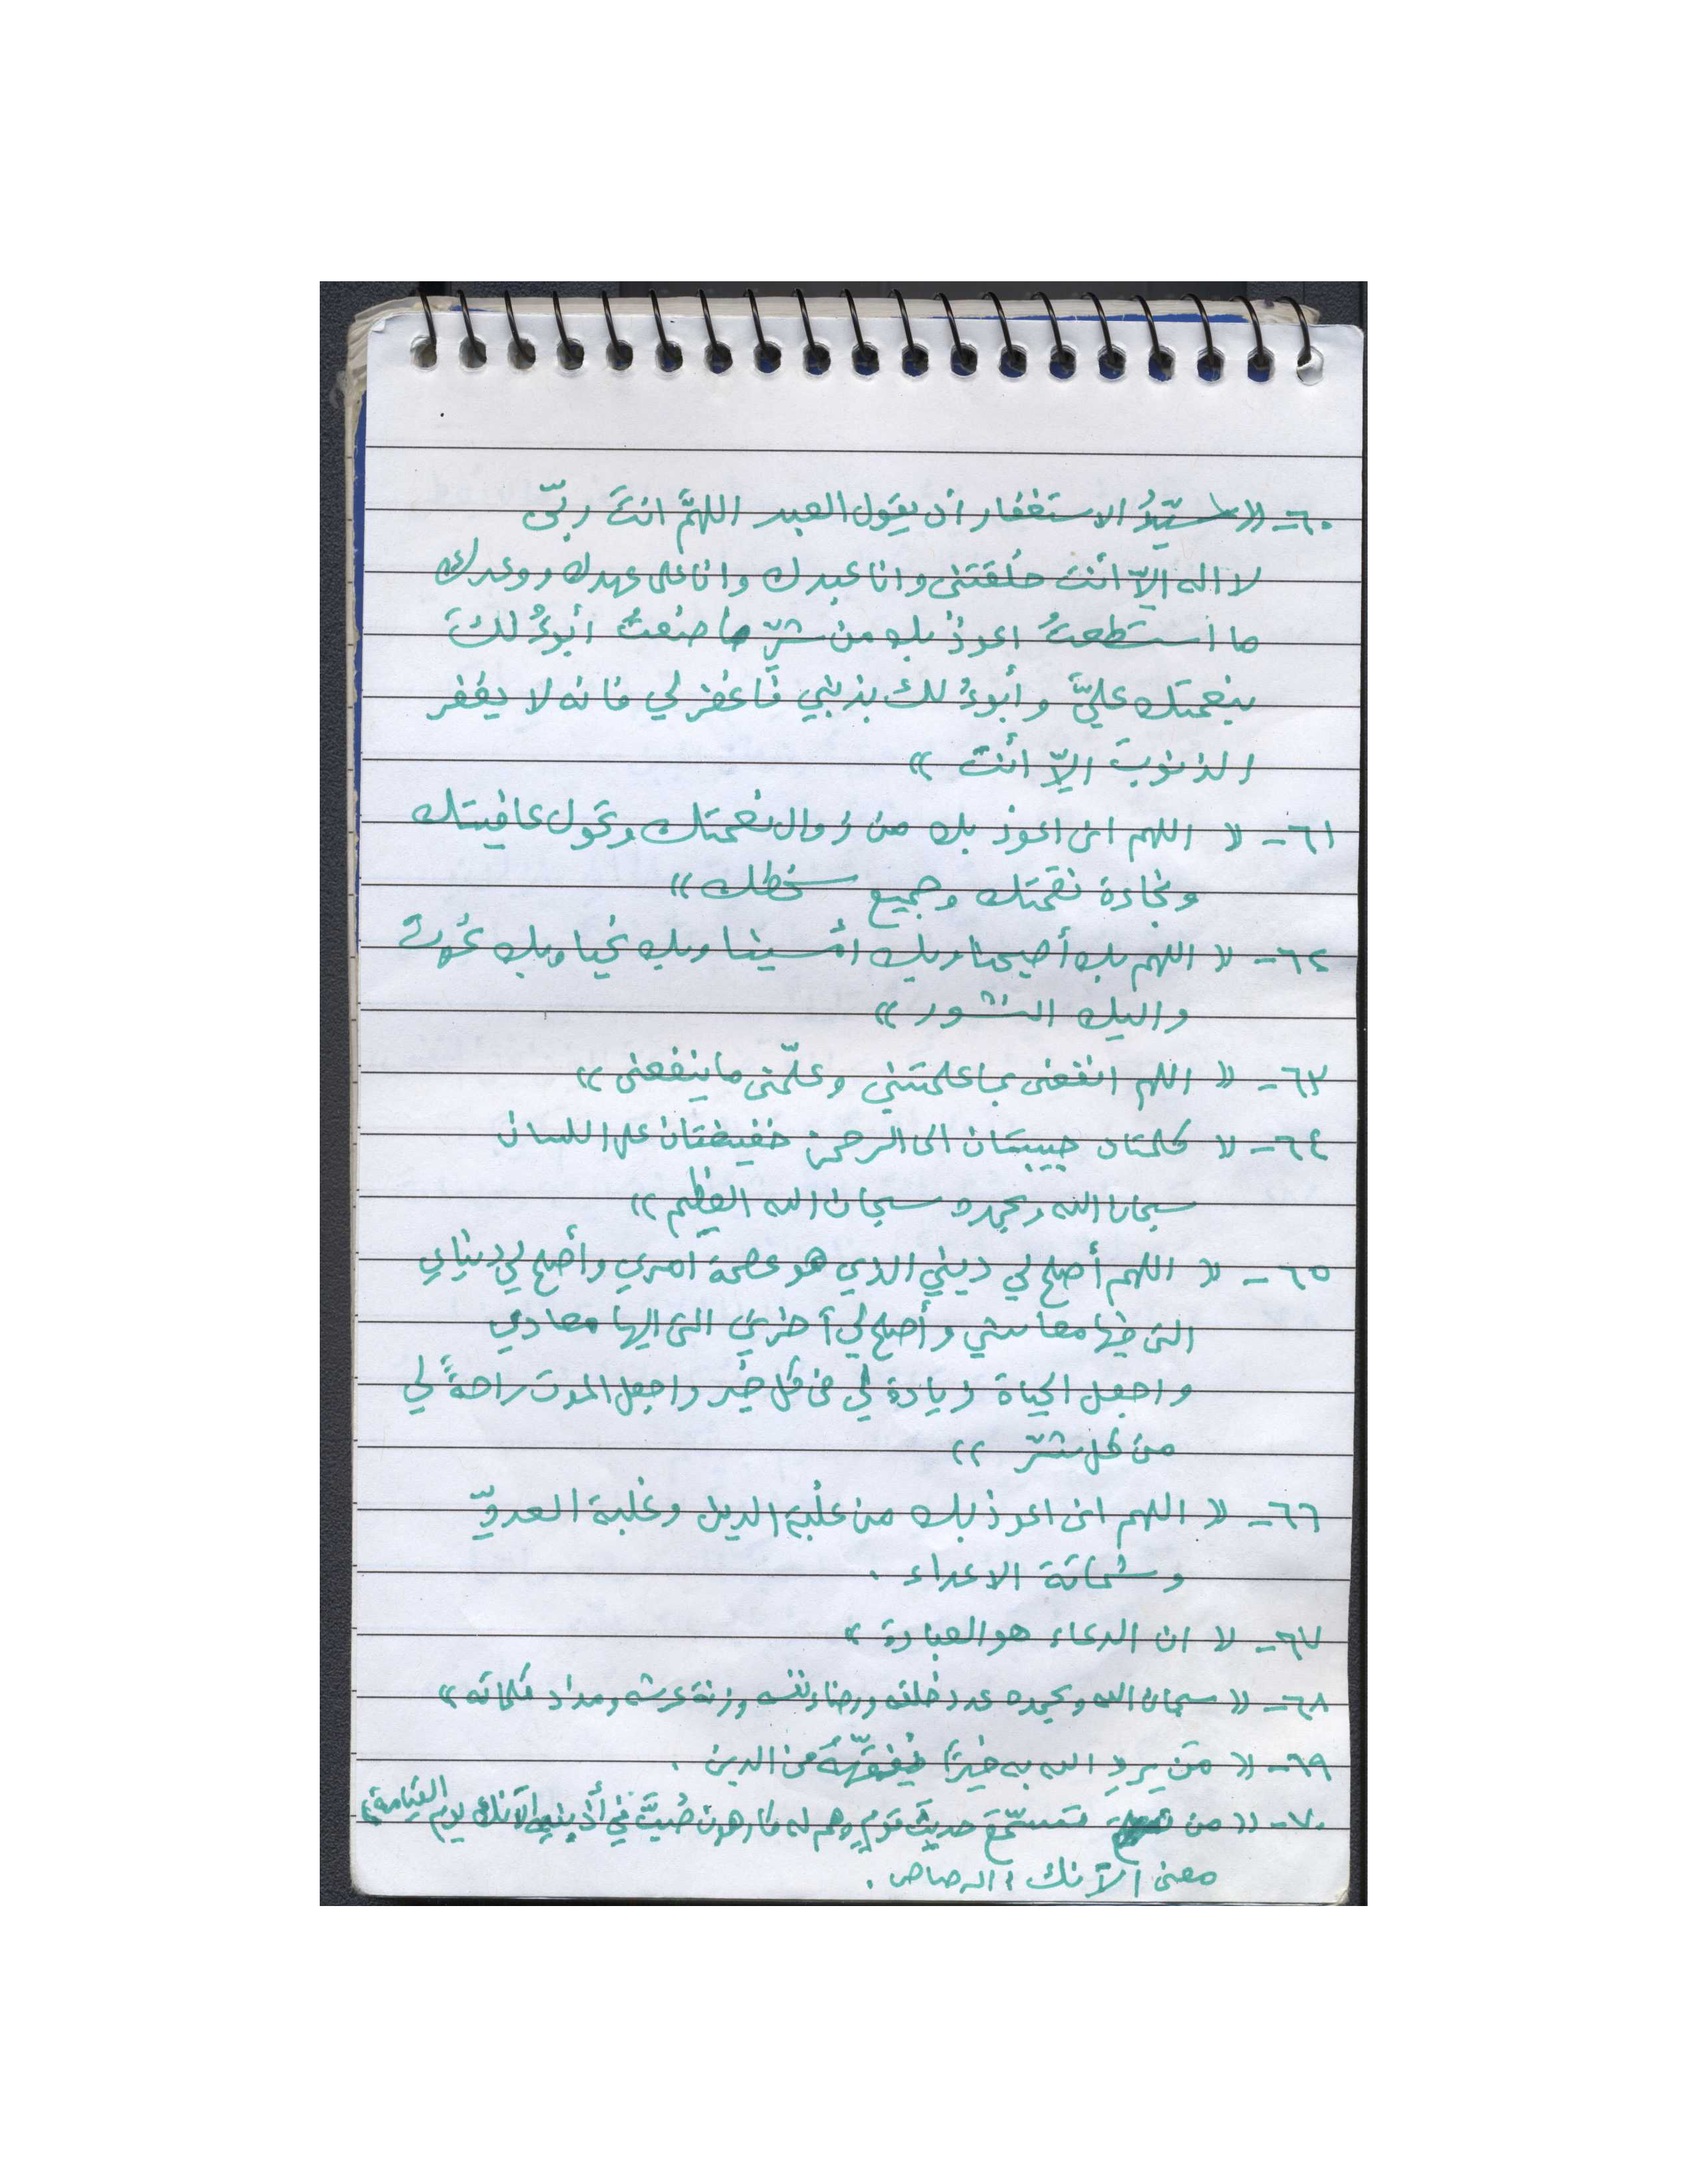 ٦٠- «سيّدُ الاستغفار ان يقول العبد اللهمَّ انتَ ربّى
لا اله الاّ أنت خلقتنى وانا عبدك وانا على عهدك ووعدك
ما استطعتُ اعوذُ بك من شرّ ما صنعتُ أبوءُ لكَ
بنعمتك عليَّ وأبوءُ لك بذنبي فاغفر لي فانه لا يغفر
الذنوبَ الاّ أنتَ »
٦١- « اللهم انى اعوذ بك من زوال نعمتك وتحول عافيتك
وفجاءة نقمتك وجميع سخطك»
٦٢- « اللهم بك أصبحنا وبك أمسينا وبك نحيا وبك نموت
واليك النشور »
٦٣- « اللهم انفعنى بما علمتني وعلّمنى ما ينفعنى »
٦٤- « كلمتان حبيبتان الى الرحمن خفيفتان على اللسان
سبحان الله وبحمده سبحان الله العظيم »
٦٥- « اللهم أصلح لي ديني الذي هو عصمة أمري وأصلح لي دنياي
التى فيها معاشي وأصلح لي آخرتي التى اليها معادي
واجعل الحياة زيادة لي فى كل خير واجعل الموت راحةً لي
من كل شرّ »
٦٦- « اللهم انى اعوذ بك من غلبة الدين وغلبة العدوِّ
وشماتة الاعداء .
٦٧- « ان الدعاء هو العبادة »
٦٨- « سبحان الله وبحمده عدد خلقه ورضاء نفسه وزنة عرشه ومداد كلماته »
٦٩- « مَن يردِ الله به خيراً يُفقّههُ فى الدين .
٧٠- « من تسمّعَ حديثَ قومٍ وهم له كارهون صُبَّ في أُذنيه الآنك يوم القيامة»
معنى الآنك : الرصاص .